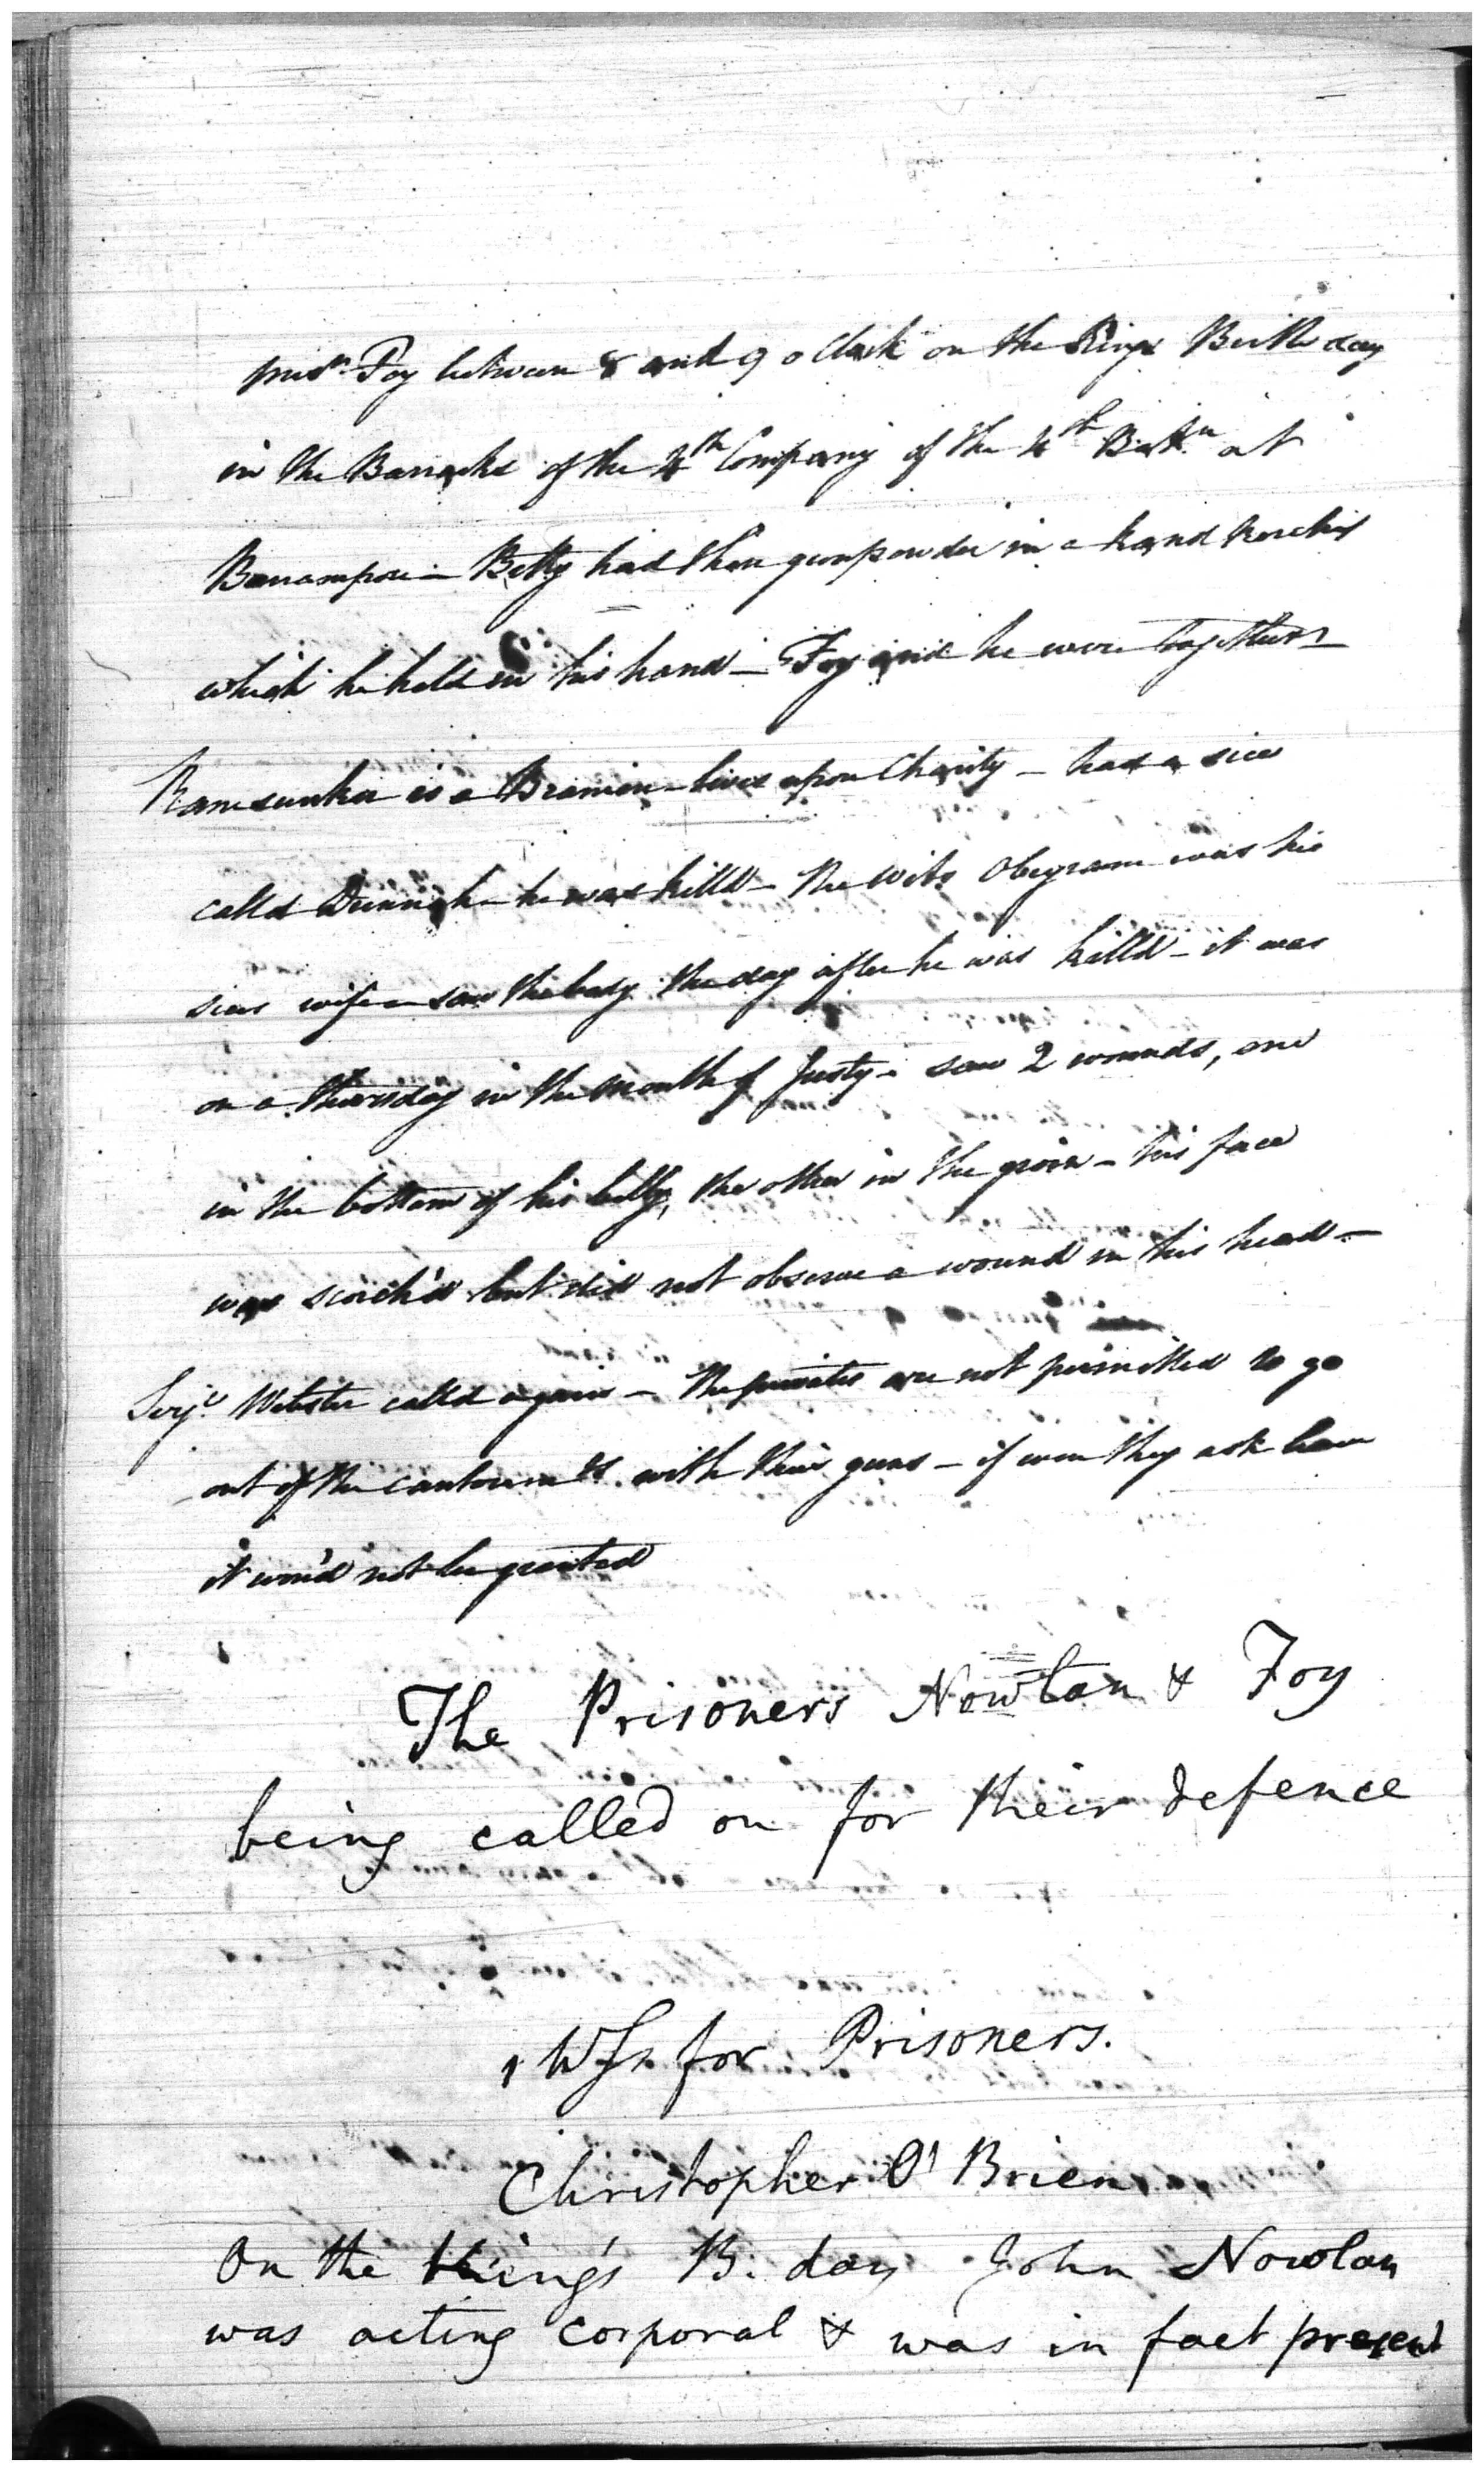 prisr. Foy between 8 and 9 o Clock on the Kings Birth day
in the Barracks of the 4th Company of the 4th Battn. at
Betty had then gunpowder in a hand kerchief
which he held in his hand - Foy and he were together -
Ramsunker is a Bramin - lives upon Charity - had a son
called he was killd - The Wits Obeyram was his
sons wife - saw the body the day after he was killd - it was
on a Thursday in the month of Justy - saw 2 wounds, one
in the bottom of his belly, the other in the groin - his face
was scorch'd but did not observe a wound in his head -
Serjt. Webster calld again - The privates are not permitted to go
out of the cantonmts with their guns - if even they ask leave
it wou'd not be granted
The Prisoners Nowlan & Foy
being called on for their defence
1 Wss for Prisoners.
Christopher O'Brien
On the King's B. day John Nowlan
was acting corporal & was in fact present